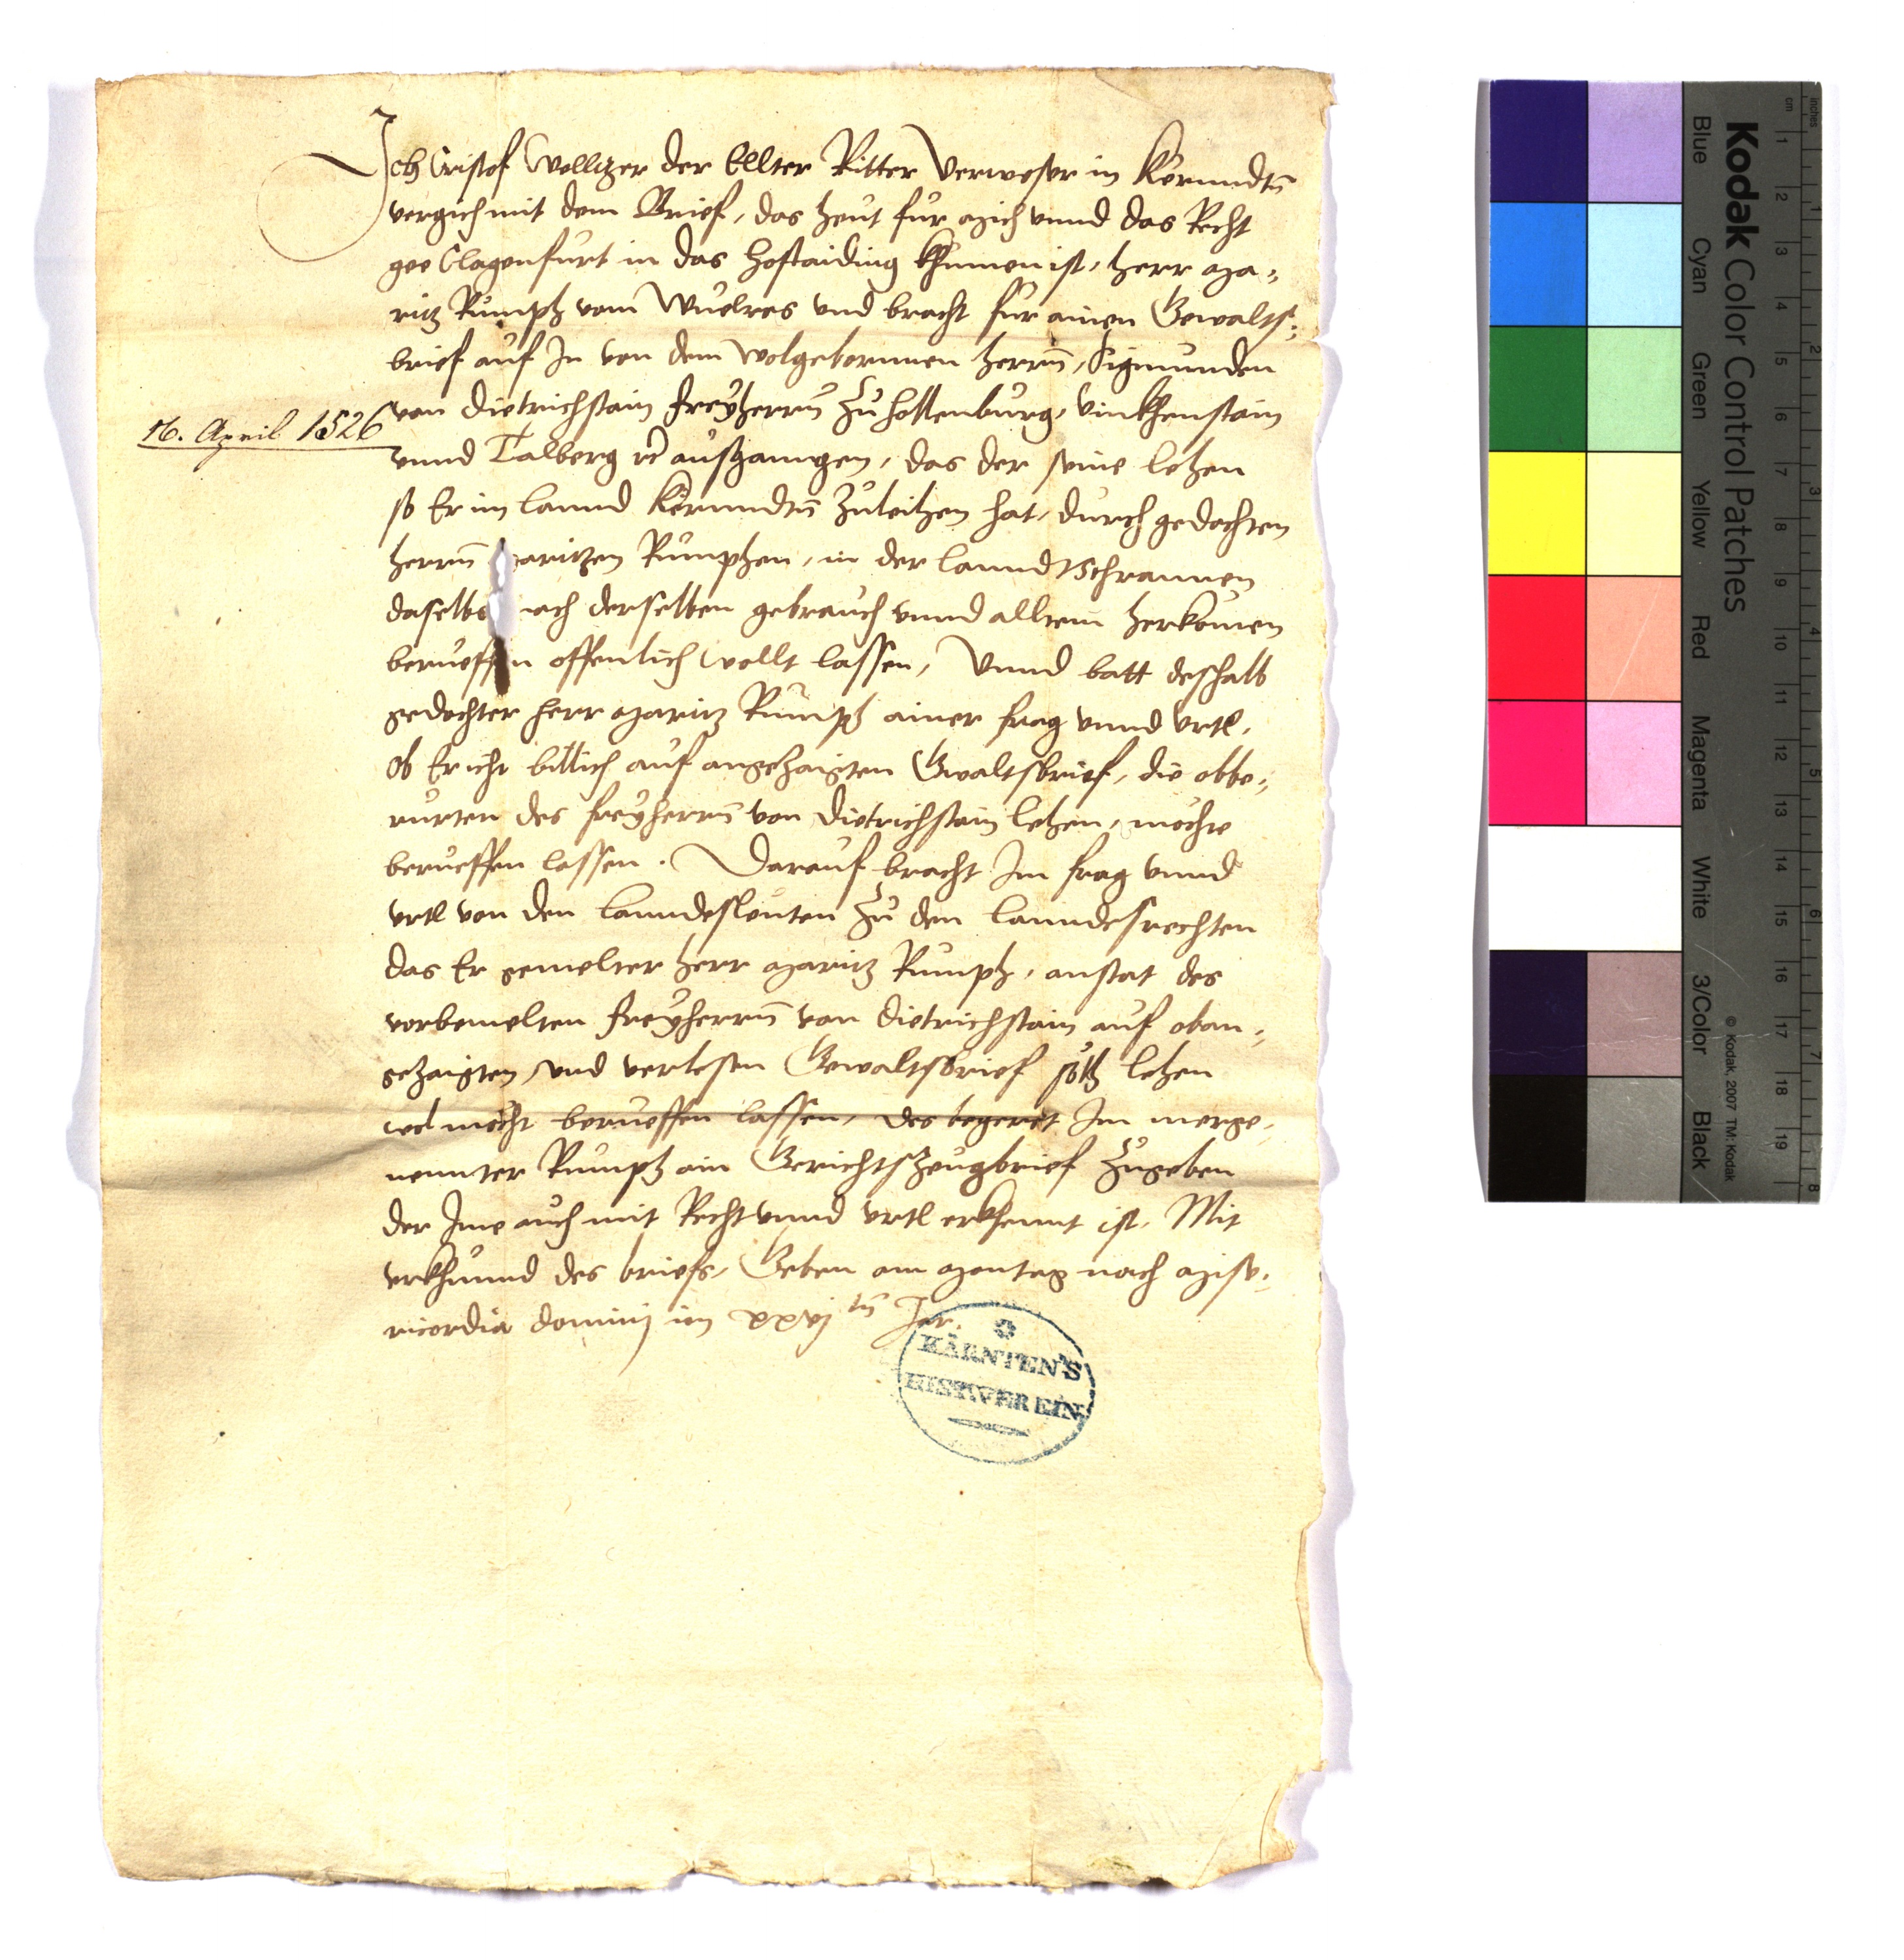 Ich Cristof Wellzer der Ellter Ritter Verweser in Kernndtn̄
vergich mit dem Brief, das heut für mich vnnd das Recht
gee Clagenfurt in das Hoftaiding khumen ist, herr Ma-
ritz Rumph vom Wuelres vnd bracht für ainen Gewalts-
brief auf In von dem wolgebornnen herrn̄, Sigmunden
von Dietrichstain freyherrn zu Hollenburg, vinkhenstain
16. April 1526
vnnd Talberg rc̄ außganngen, das der seine lehen
so Er im lannd Kernndtn̄ zuleihen hat, durch gedachten
herrn̄ aritzen Rumphen, in der lanndtschrannen
daselbs ach derselben gebrauch vnnd alltem herkomen
berueffn offenlich wollt lassen, Vnnd batt deshalb
gedachter herr Maritz Rumph ainer frag vnnd vrtl,
ob Er icht billich auf angezaigten Gwaltsbrief, die obbe-
rurten des freyherrn̄ von Dietrichstain lehen, mochte
berueffen lassen. Darauf bracht Im frag vnnd
vrtl von den lanndesleuten zu den lanndesrechten
das Er gemelter herr Maritz Rumph, anstat des
vorbemelten freyherrn̄ von Dietrichstain auf oban-
gezaigten vnd verlesen Gewaltsbrief solh lehen
wol möcht berueffen lassen, des begeret Im merge-
nennter Rumph ain Gerichtszeugbrief zugeben
der Ime auch mit Recht vnnd vrtl erkhennt ist, Mit
vrkhunnd des briefs, Geben am Montag nach Mise-
ricordia dominj im xxvj tn̄ Jar.
KÄRNTEN'S
HIST. VEREIN
Kodak Color Control Patches
Blue Cyan Green Yellow Red Magenta White 3/Color Black
© Kodak, 2007 TM: Kodak
inches 1 2 3 4 5 6 7 8
cm 1 2 3 4 5 6 7 8 9 10 11 12 13 14 15 16 17 18 19